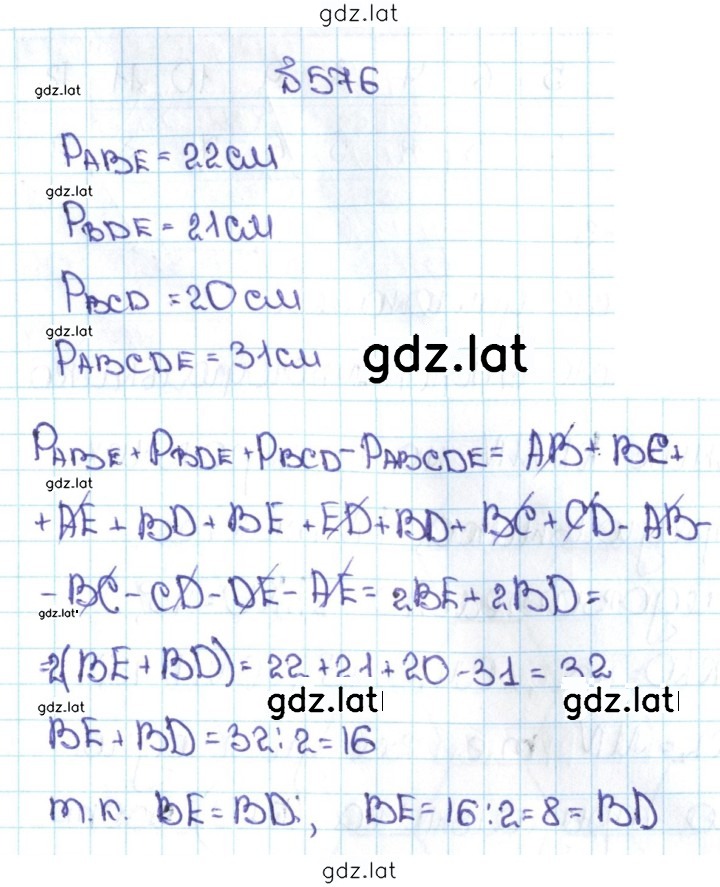 gdz.lat
№576
gdz.lat
PABE = 22см
gdz.lat
PBDE = 21см
PBCD = 20см
gdz.lat
PABCDE = 31см
gdz.lat
PABE + PBDE + PBCD - PABCDE = AB + BE +
gdz.lat
+ AE + BD + BE + ED + BD + BC + CD - AB -
- BC - CD - DE - AE = 2BE + 2BD =
gdz.lat
=2(BE + BD) = 22 + 21 + 20 - 31 = 32
gdz.lat gdz.lat gdz.lat
BE + BD = 32 : 2 = 16
т.к. BE = BD, BE = 16 : 2 = 8 = BD
gdz.lat